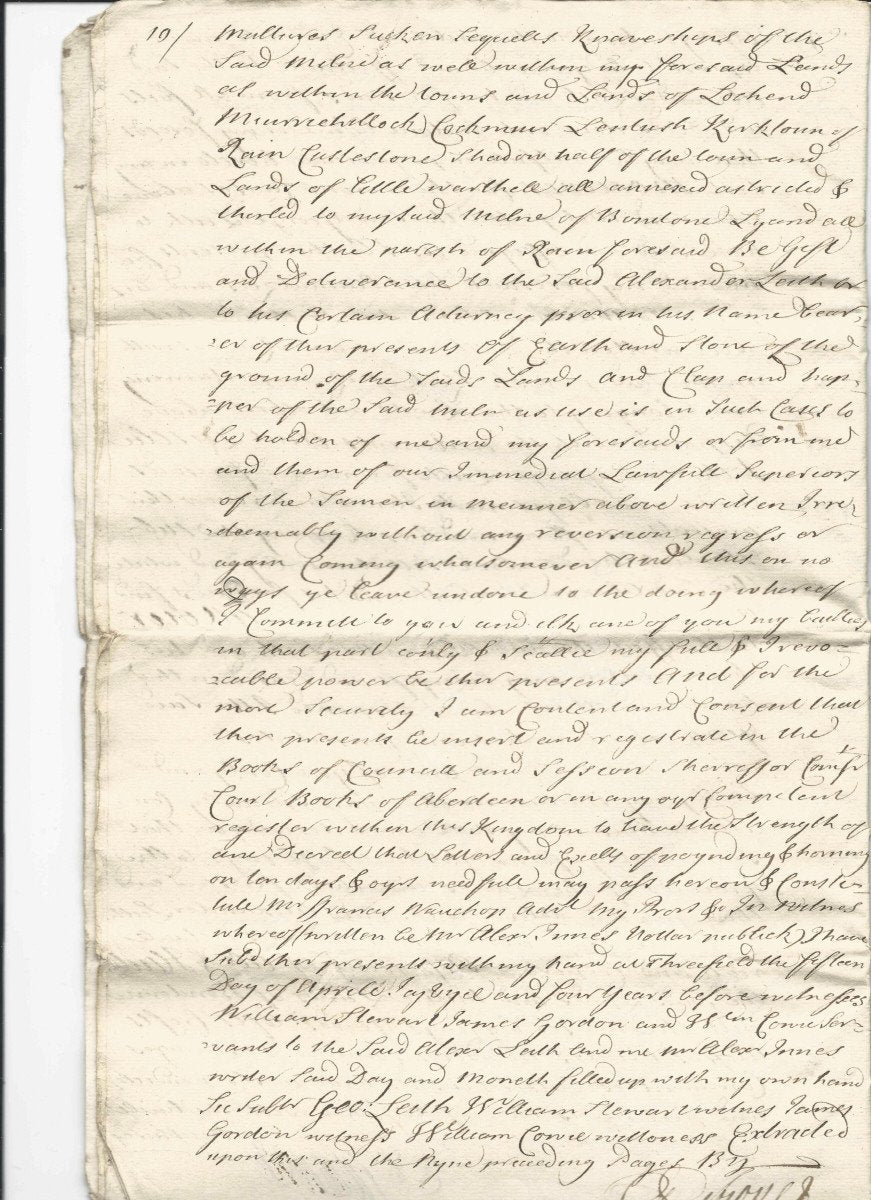 10/
multures Sucken Sequells Knaveships of the
Said Milne as well within my foresaid Lands
as within the touns and Lands of Lochend
Muirriehillock Cockmuir Lentush Kirktoun of
Rain Castlestone Shadow half of the toun and
Lands of little warthell all annexed astricted &
thirled to my said Milne of Bondone Lyand all
within the parish of Rain foresaid Be Gift
and Deliverance to the Said Alexander Leith or
to his Certain Aturney pror in his Name bear,
=er of thir presents Of Earth and Stone of the
ground of the Saids Lands And Clap and hap,
=per of the Said miln as use is in Such Cases to
be holden of me and my foresaids or from me
and them of our Immediat Lawfull Superiors
of the Samen in manner above written Irre,
=deemably without any reversion regress or
again Coming whatsomever And this on no
ways ye leave undone to the doing whereof
I Committ to you and ilk ane of you my baillies
in that part conly & seallie my full & Irevo=
=cable power be thir presents And for the
more Security I am Content and Consent that
thir presents be insert and registrate in the
Books of Council and Session Sherreff or
Court Books of Aberdeen or in any oyr Competent
register within this Kingdom to have the Strength of
ane Decreet that Letters and Exells of poynding & horning
on ten days & oyrs needfull may pass hereon & Conste=
tute Mr Francis Wauchop Advt my Prors &c In witnes
whereof (written be Mr Alexr Innes Nottar publick) I have
Subd thir presents with my hand at Threefield the fifteen
Day of Aprile Jajvijc and four Years before witnesses
William Stewart James Gordon and Wm Cowie Ser=
=vants to the Said Alexr Leith And me Mr Alexr Innes
writer Said Day and Moneth filled up with my own hand
Sic Subtr Geo: Leith William Stewart witnes James
Gordon witness William Cowie wittness Extracted
upon this and the Nyne preceeding Pages By